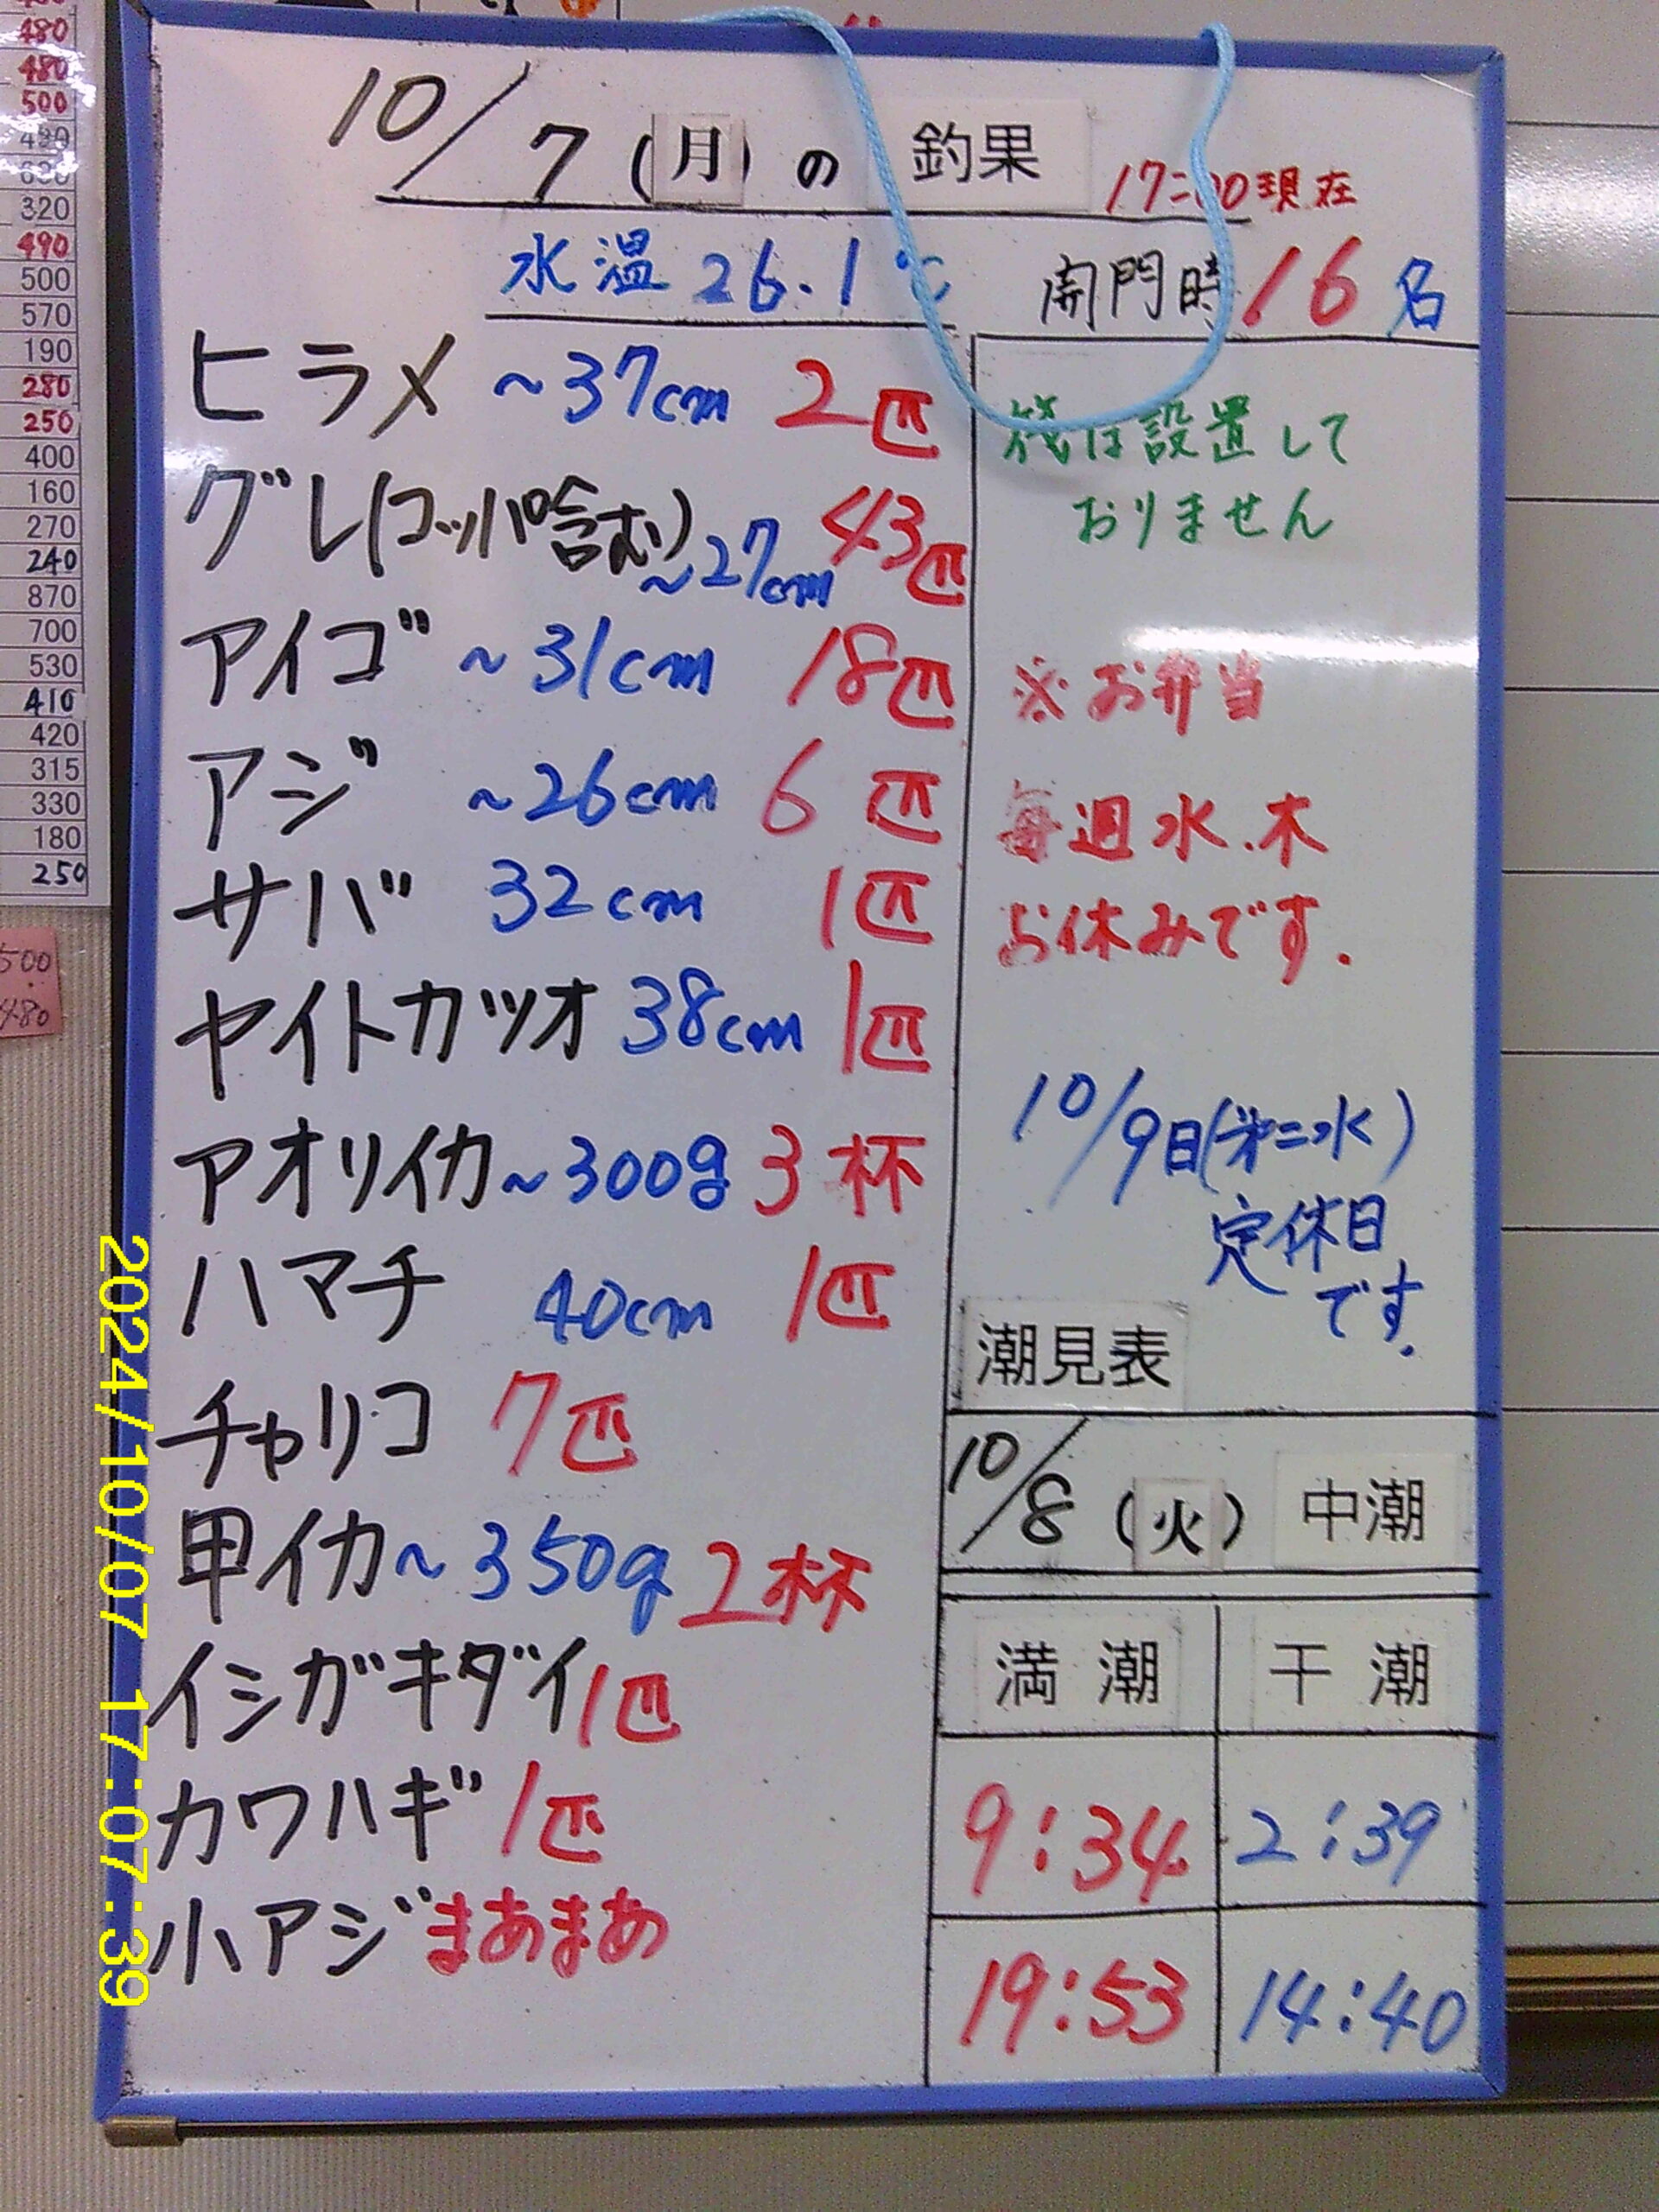 480
480
500
490
320
490
500
570
190
280
250
400
160
270
240
870
700
530
410
420
315
330
180
250
500
480
10/7(月)の 釣果 17:00現在
水温 26.1℃ 開門時16名
ヒラメ ~37cm 2匹
グレ(コッパ含む) ~27cm 43匹
アイゴ ~31cm 18匹
アジ ~26cm 6匹
サバ 32cm 1匹
ヤイトカツオ 38cm 1匹
アオリイカ ~300g 3杯
ハマチ 40cm 1匹
チャリコ 7匹
甲イカ ~350g 2杯
イシガキダイ 1匹
カワハギ 1匹
小アジ まあまあ
筏は設置して
おりません
※お弁当
毎週水.木
お休みです.
10/9日(第二水)
定休日
です.
潮見表
10/8(火) 中潮
満潮 干潮
9:34 2:39
19:53 14:40
2024/10/07 17:07:39